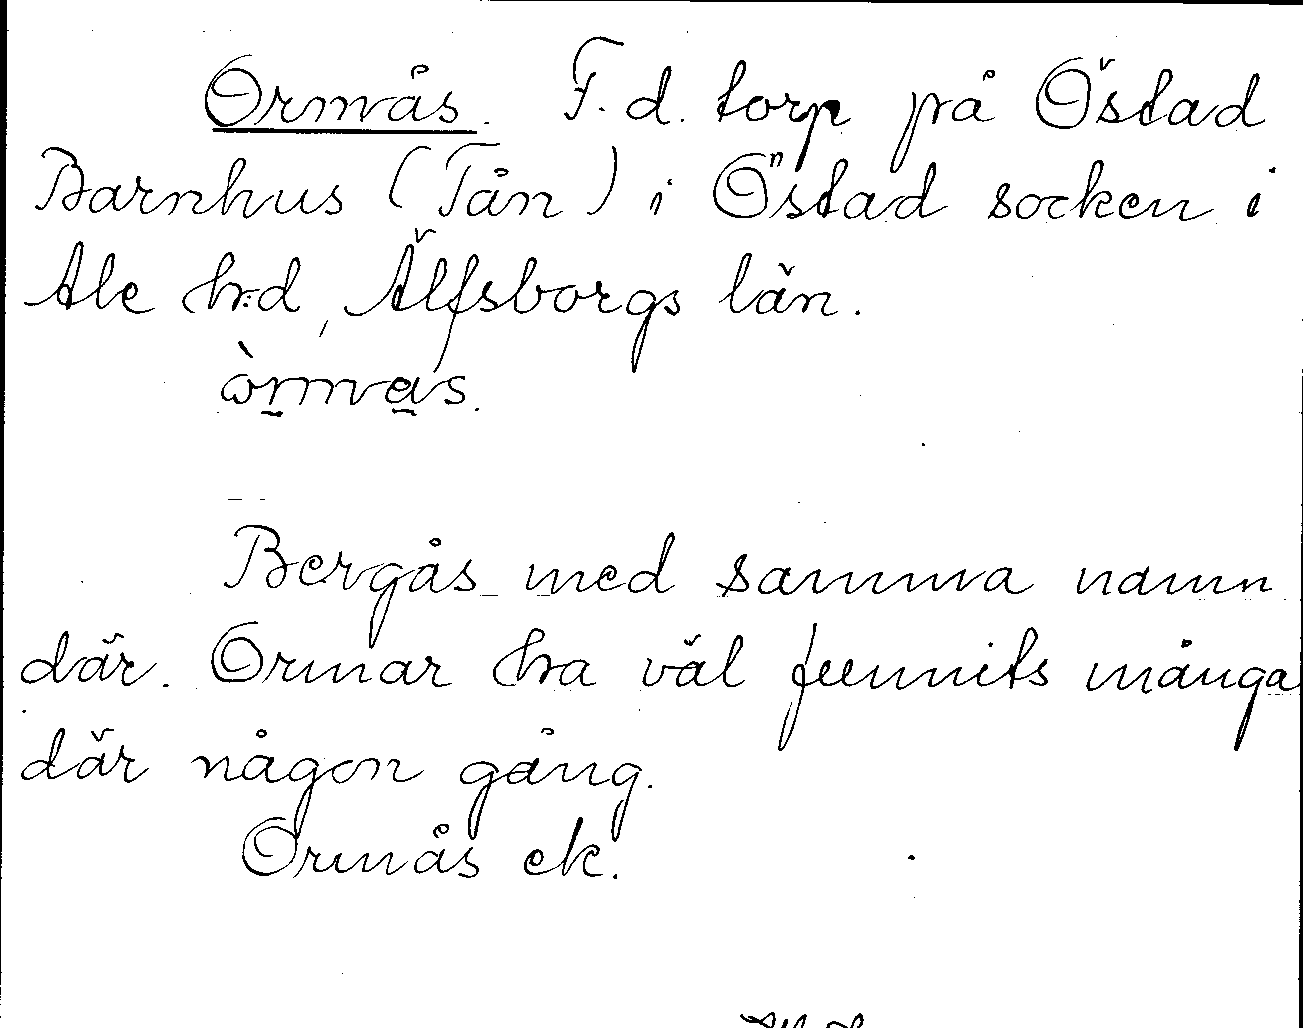 Ormås. F.d. torp på Östad
Barnhus (Tån) i Östad socken i
Ale h:d, Älfsborgs län.
òrmas.
Bergås med samma namn
där. Ormar ha väl funnits många
där någon gång.
Ormås ek.